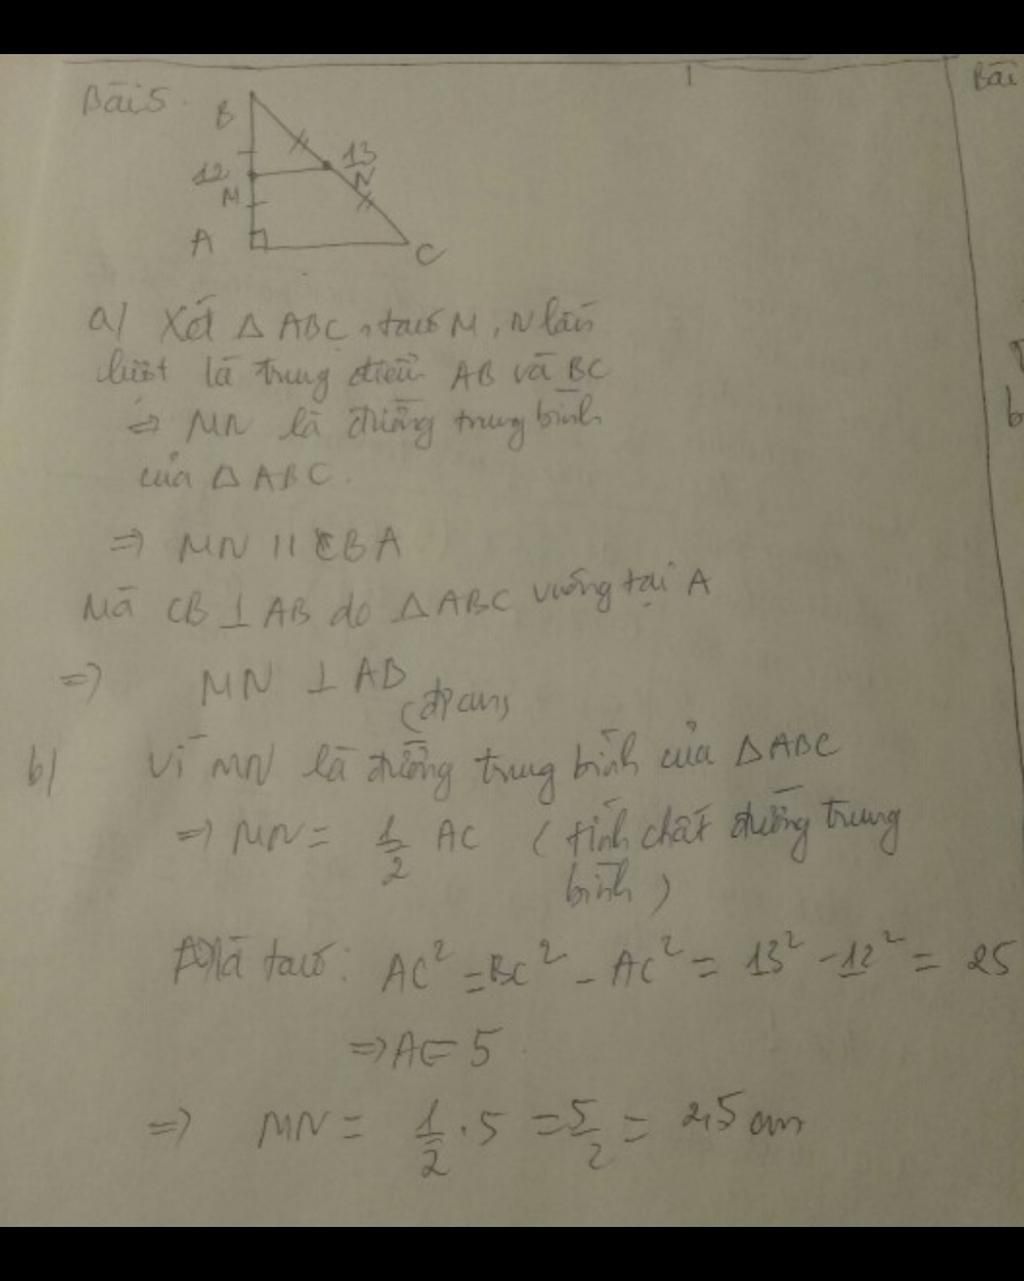 Bài 5.
B
12
13
M
N
A
C
a) Xét △ ABC, ta có M, N lần
lượt là trung điểm AB và BC
⇒ MN là đường trung bình
của △ ABC.
⇒ MN // CBA
Mà CB ⊥ AB do △ ABC vuông tại A
⇒ MN ⊥ AB
(đpcm)
b) Vì MN là đường trung bình của △ ABC
⇒ MN = 1/2 AC (tính chất đường trung
bình)
Mà ta có: AC² = BC² - AC² = 13² - 12² = 25
⇒ AC = 5
⇒ MN = 1/2 . 5 = 5/2 = 2,5 cm
Bài
b